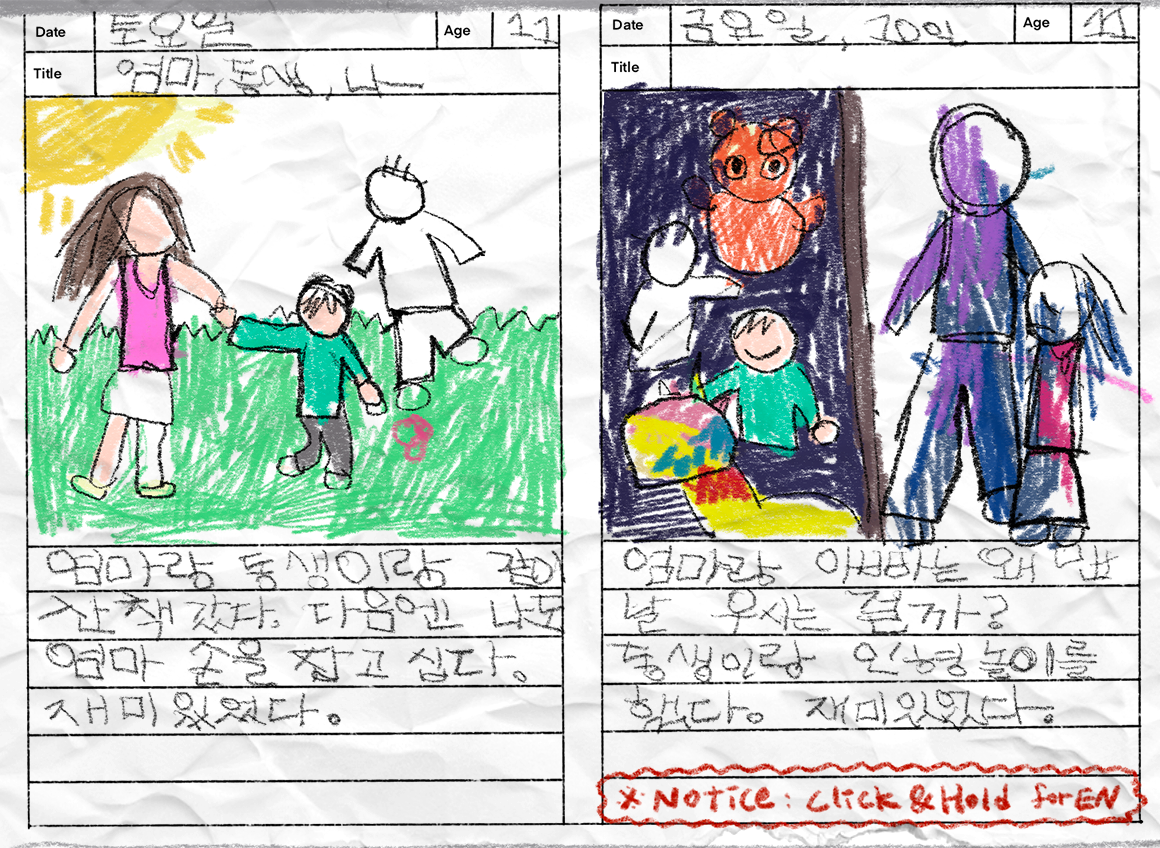 Date 토요일 Age 11
Title 엄마, 동생, 나
엄마랑 동생이랑
산책 갔다. 다음엔 나도
엄마 손을 잡고 십다.
재미있었다.
Date 금요일, 10일 Age 11
Title
엄마랑 아빠는 왜 맨
날 우시는 걸까?
동생이랑 인형 놀이를
했다. 재미있었다.
* NOTICE: click & Hold for EN